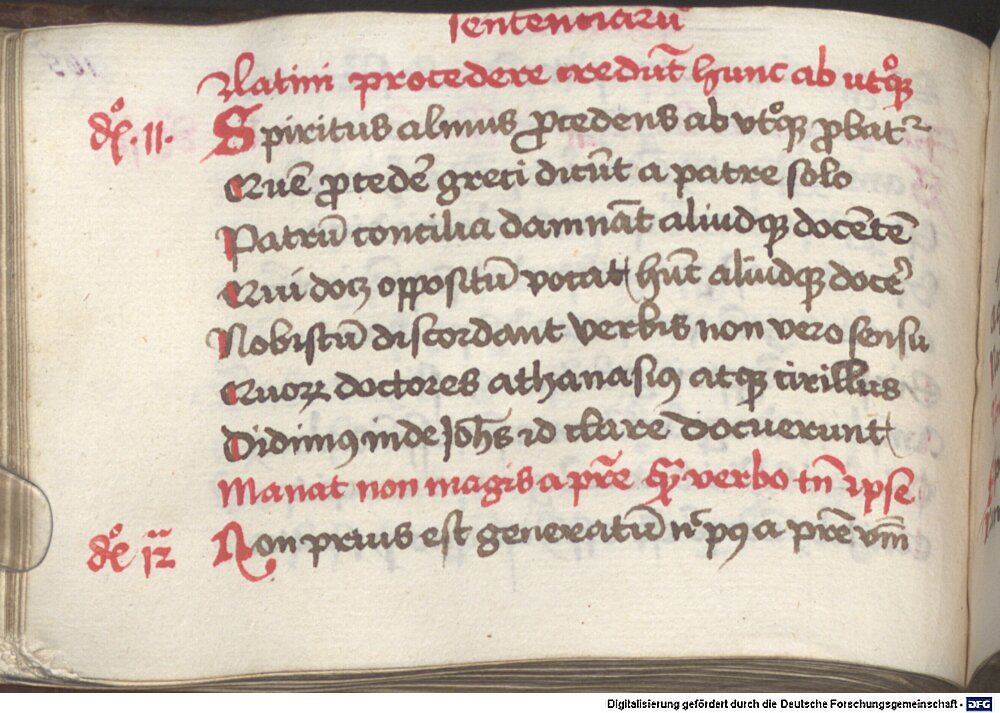 sententiarū
Latini procedere credūt hunc ab utͦqꝫ
dͦ. 11. Spiritus almus ꝓcedens ab vtͦqꝫ ꝓbatᷣ
Quē ꝓcedē greci dicūt a patre solo
Patrū concilia damnāt aliudqꝫ docētē
Qui docꝫ oppositū vocat hūc aliudqꝫ docē
Nobiscū discordant verbis non vero sensu
Quoꝝ doctores athanasiꝯ atqꝫ cirillus
Didimꝯ inde Joh̄s id clare docuerunt
Manat non magis a pr̄e qͣ verbo tn̄ ipse
dͦ 12 Non prius est generatū nͨ pꝯ a pr̄e vnū
Digitalisierung gefördert durch die Deutsche Forschungsgemeinschaft - DFG